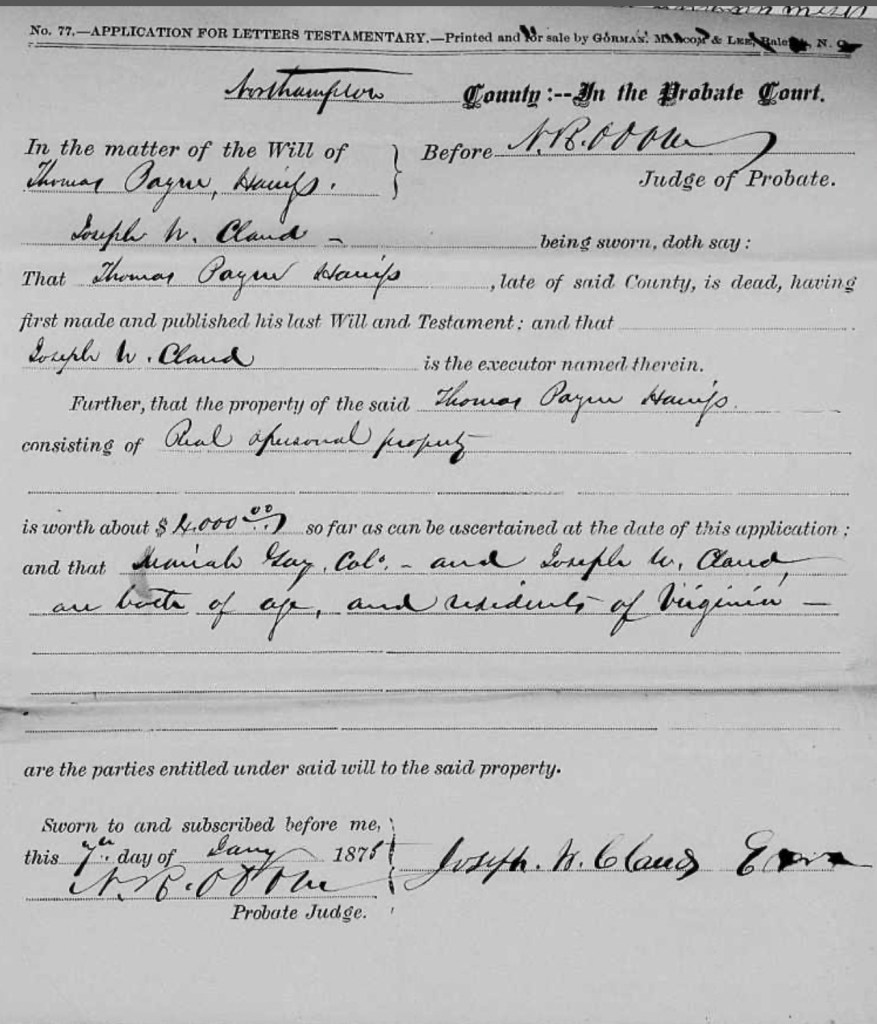 No. 77.—APPLICATION FOR LETTERS TESTAMENTARY.—Printed and for sale by GORMAN, & LEE, N. C.
Northampton County:--In the Probate Court.
In the matter of the Will of
Thomas Payne Harriss.
Before N. R. Odom
Judge of Probate.
Joseph W. Claud – being sworn, doth say:
That Thomas Payne Harriss, late of said County, is dead, having
first made and published his last Will and Testament; and that
Joseph W. Claud is the executor named therein.
Further, that the property of the said Thomas Payne Harriss.
consisting of Real & personal property
is worth about $ 4.000 00 so far as can be ascertained at the date of this application;
and that Mariah Gay, Col. – and Joseph W. Claud,
are both of age, and residents of Virginia –
are the parties entitled under said will to the said property.
Sworn to and subscribed before me,
this 7th day of Jany 1875
N. R. Odom
Probate Judge.
Joseph. W. Claud